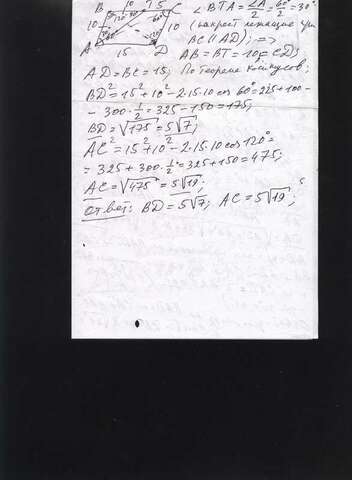 B 10 T 5
∠BTA = ∠A/2 = 60°/2 = 30°
10 10 (накрест лежащие при
BC || AD); =>
A 15 D AB = BT = 10 = CD;
AD = BC = 15; По теореме косинусов:
BD² = 15² + 10² - 2·15·10 cos 60° = 225 + 100 -
- 300·1/2 = 325 - 150 = 175;
BD = √175 = 5√7;
AC² = 15² + 10² - 2·15·10 cos 120° =
= 325 + 300·1/2 = 325 + 150 = 475;
AC = √475 = 5√19;
Ответ: BD = 5√7; AC = 5√19;